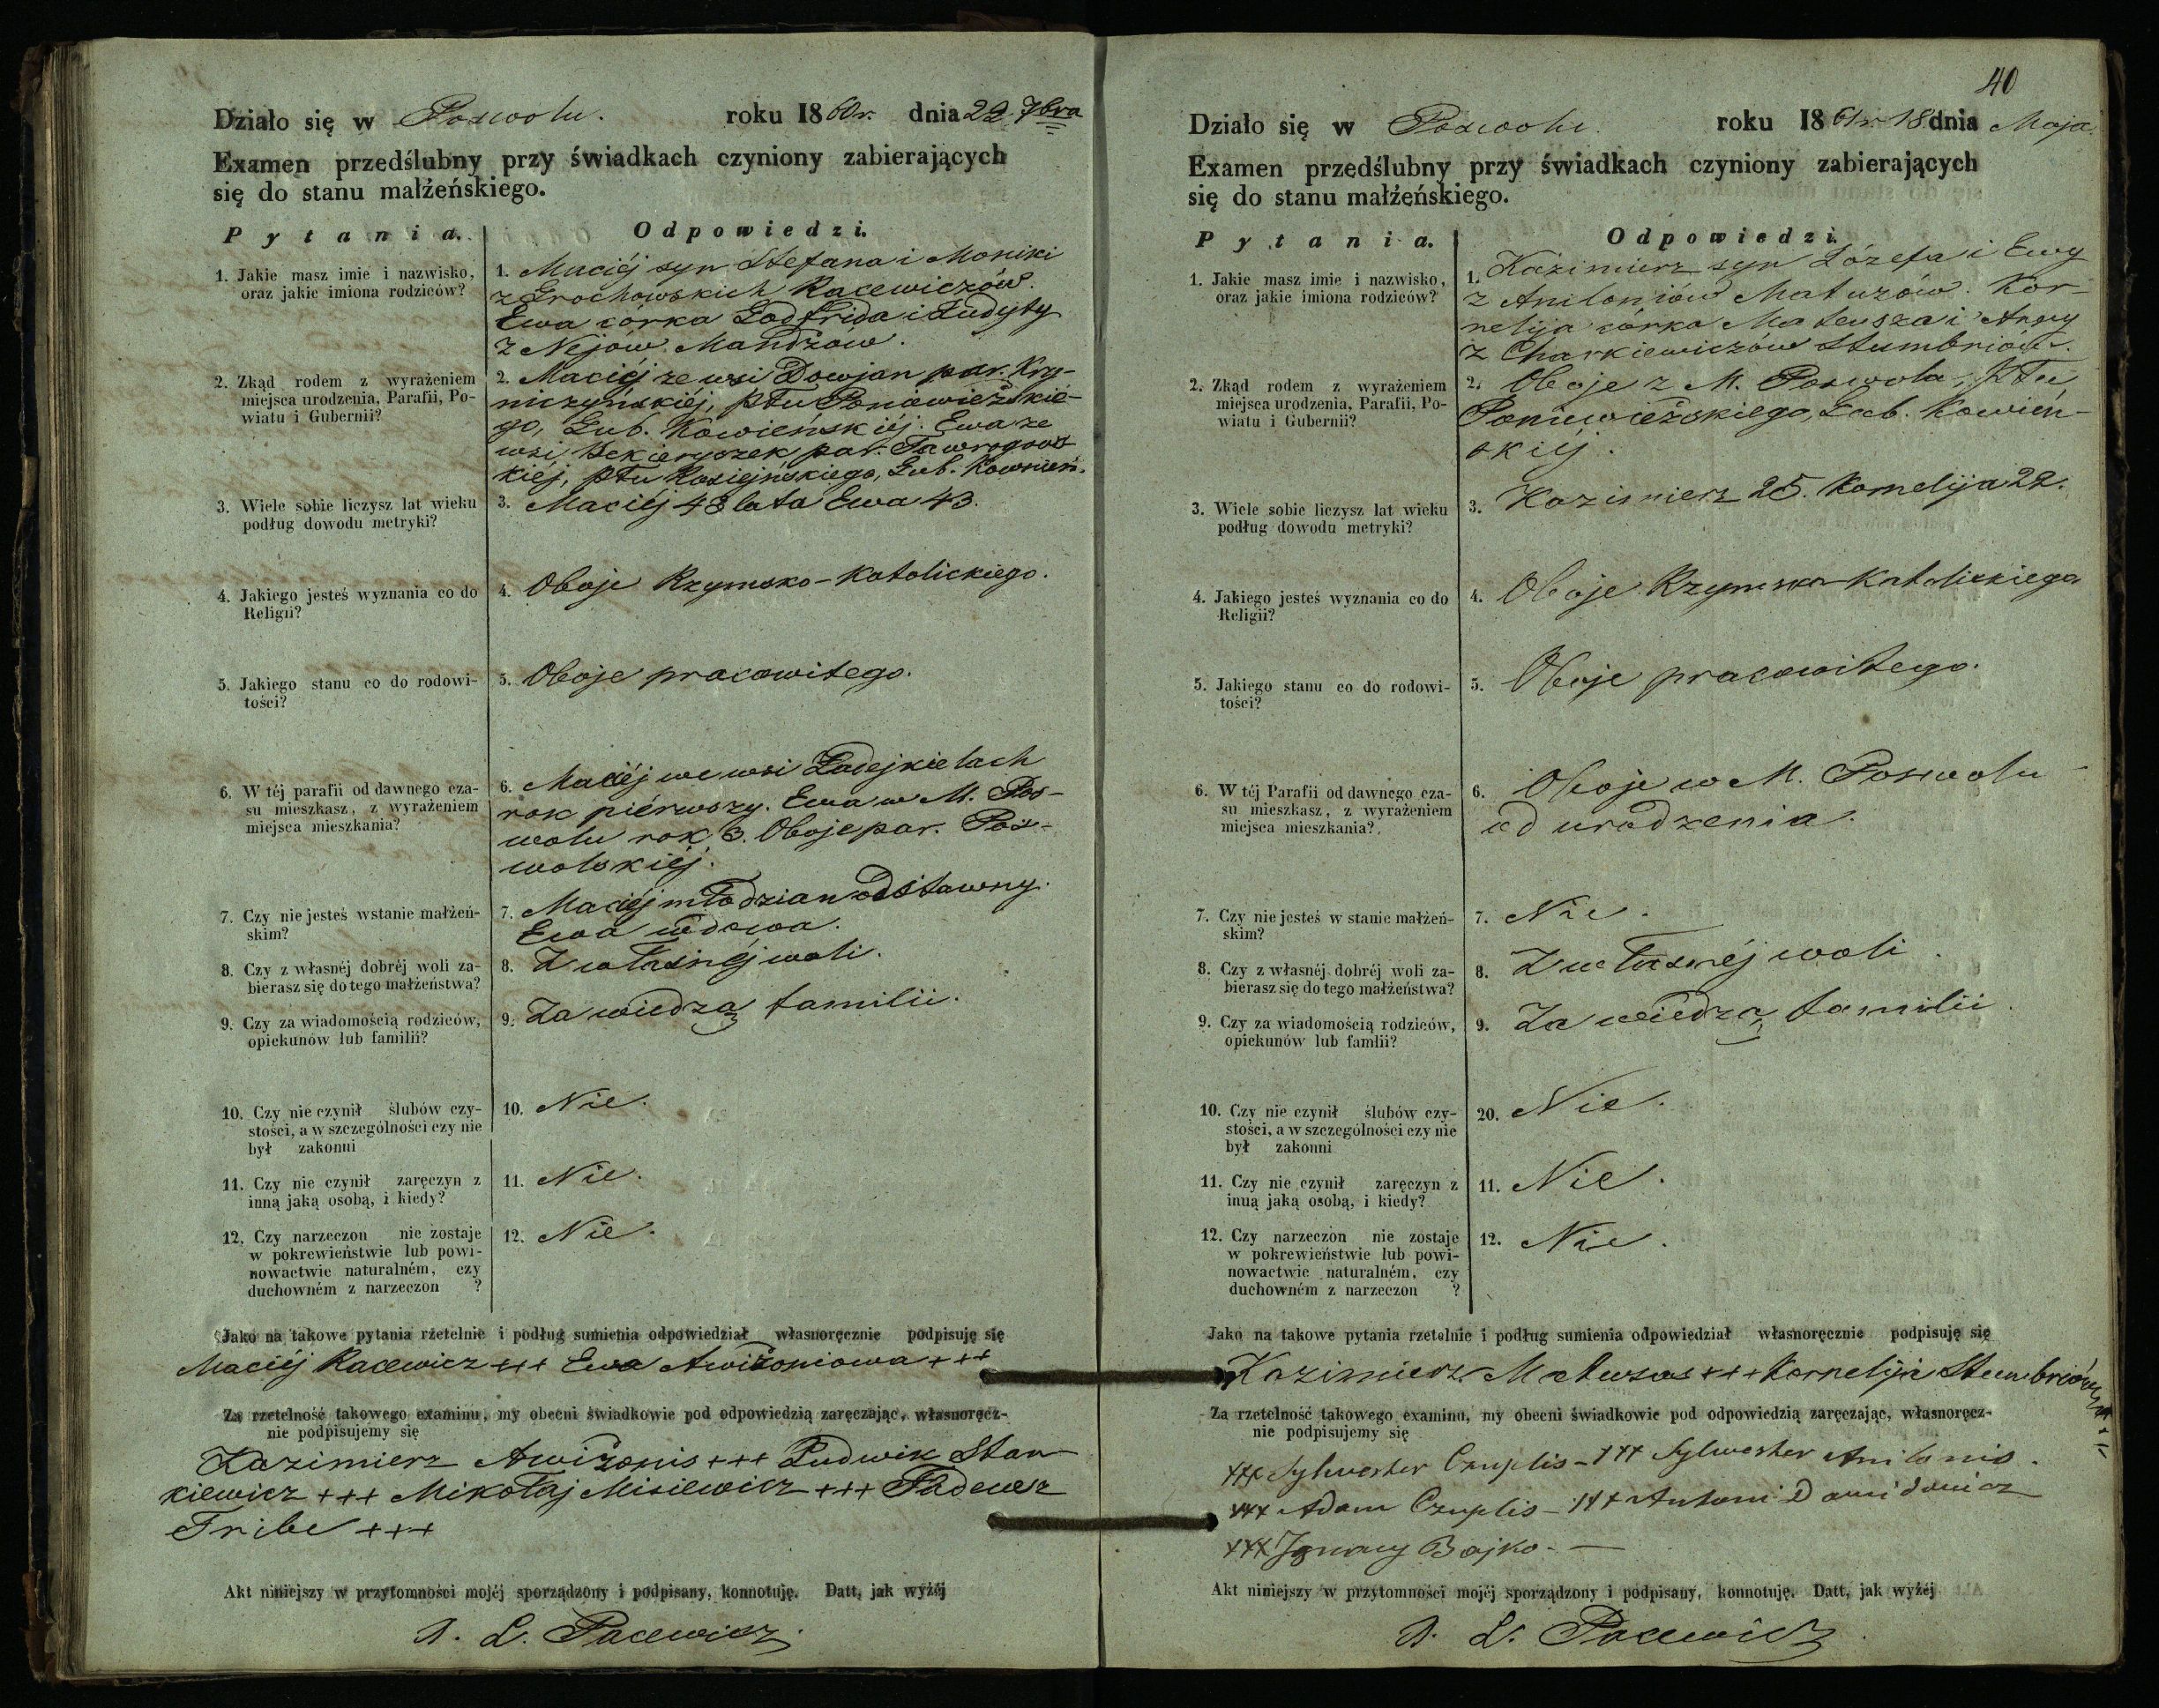 Działo się w Poswolu. roku 1860 r. dnia 22 7bra
Examen przedślubny przy świadkach czyniony zabierających
się do stanu małżeńskiego.
Pytania. Odpowiedzi.
1. Jakie masz imie i nazwisko,
oraz jakie imiona rodziców?
1. Maciéj syn Stefana i Moniki
z Grochowskich Racewiczów.
Ewa córka Godfrida i Judyty
z Nejów Mandzów.
2. Zkąd rodem z wyrażeniem
miejsca urodzenia, Parafii, Po-
wiatu i Gubernii?
2. Maciéj ze wsi Dowjan par. Kry-
niczyńskiéj, Pttu Poniewiézkie-
go, Gub. Kowieńskiéj. Ewa ze
wsi par. Tawrogows-
kiéj, pttu Rosiejńskiego, Gub. Kownień.
3. Wiele sobie liczysz lat wieku
podług dowodu metryki?
3. Maciéj 48 lata Ewa 43.
4. Jakiego jesteś wyznania co do
Religii?
4. Oboje Rzymsko-Katolickiego.
5. Jakiego stanu co do rodowi-
tości?
5. Oboje pracowitego.
6. W téj parafii od dawnego cza-
su mieszkasz, z wyrażeniem
miejsca mieszkania?
6. Maciéj we wsi Zadejkielach
rok piérwszy. Ewa w M. Pos-
wolu rok 3. Oboje par. Pos-
wolskiéj.
7. Czy nie jesteś wstanie małżeń-
skim?
7. Maciéj młodzian odstawny.
Ewa wdowa.
8. Czy z własnéj dobréj woli za-
bierasz się do tego małżeństwa?
8. Z własnéj woli.
9. Czy za wiadomością rodziców,
opiekunów lub familii?
9. Za wiedzą familii.
10. Czy nie czynił ślubów czy-
stości, a w szczególności czy nie
był zakonni
10. Nie.
11. Czy nie czynił zaręczyn z
inną jaką osobą, i kiedy?
11. Nie.
12. Czy narzeczon nie zostaje
w pokrewieństwie lub powi-
nowactwie naturalném, czy
duchowném z narzeczon ?
12. Nie.
Jako na takowe pytania rzetelnie i podług sumienia odpowiedział własnoręcznie podpisuję się
Maciéj Racewicz +++ Ewa Awiżoniowa +++
Za rzetelność takowego examinu, my obecni świadkowie pod odpowiedzią zaręczając, własnoręcz-
nie podpisujemy się
Kazimierz Awiżonis +++ Ludwik Stan-
kiewicz +++ Mikołaj Misiewicz +++ Tadeusz
Tribe +++
Akt niniejszy w przytomności mojéj sporządzony i podpisany, konnotuję. Datt, jak wyżéj
L. Pacewicz.
40
Działo się w Poswolu. roku 1861 r. 18 dnia Maja.
Examen przedślubny przy świadkach czyniony zabierających
się do stanu małżeńskiego.
Pytania. Odpowiedzi.
1. Jakie masz imie i nazwisko,
oraz jakie imiona rodziców?
1. Kazimierz syn Józefa i Ewy
z Aniloniów Matuzów. Kor-
nelija córka Mateusza i Anny
z Charkiewiczów Stumbriów.
2. Zkąd rodem z wyrażeniem
miejsca urodzenia, Parafii, Po-
wiatu i Gubernii?
2. Oboje z M. Poswola, Pttu
Poniewiéżskiego, Gub. Kowień-
skiéj.
3. Wiele sobie liczysz lat wieku
podług dowodu metryki?
3. Kazimierz 25. Kornelija 22.
4. Jakiego jesteś wyznania co do
Religii?
4. Oboje Rzymsko-Katolickiego
5. Jakiego stanu co do rodowi-
tości?
5. Oboje pracowitego.
6. W téj Parafii od dawnego cza-
su mieszkasz, z wyrażeniem
miejsca mieszkania?
6. Oboje w M. Poswolu
od urodzenia.
7. Czy nie jesteś w stanie małżeń-
skim?
7. Nie.
8. Czy z własnéj dobréj woli za-
bierasz się do tego małżeństwa?
8. Z własnéj woli.
9. Czy za wiadomością rodziców,
opiekunów lub famlii?
9. Za wiedzą familii.
10. Czy nie czynił ślubów czy-
stości, a w szczególności czy nie
był zakonni
20. Nie.
11. Czy nie czynił zaręczyn z
inną jaką osobą, i kiedy?
11. Nie.
12. Czy narzeczon nie zostaje
w pokrewieństwie lub powi-
nowactwie naturalném, czy
duchowném z narzeczon ?
12. Nie.
Jako na takowe pytania rzetelnie i podług sumienia odpowiedział własnoręcznie podpisuję się
Kazimierz Matuzas +++ Kornelija Stumbriówn
Za rzetelność takowego examinu, my obecni świadkowie pod odpowiedzią zaręczając, własnoręcz-
nie podpisujemy się
+++ Sylwester Czuplis - +++ Sylwester Anilonis.
+++ Adam Czuplis - +++ Antoni Dawidowicz
+++ Ignacy Bojko. —
Akt niniejszy w przytomności mojéj sporządzony i podpisany, konnotuję. Datt, jak wyżéj
L. Pacewicz